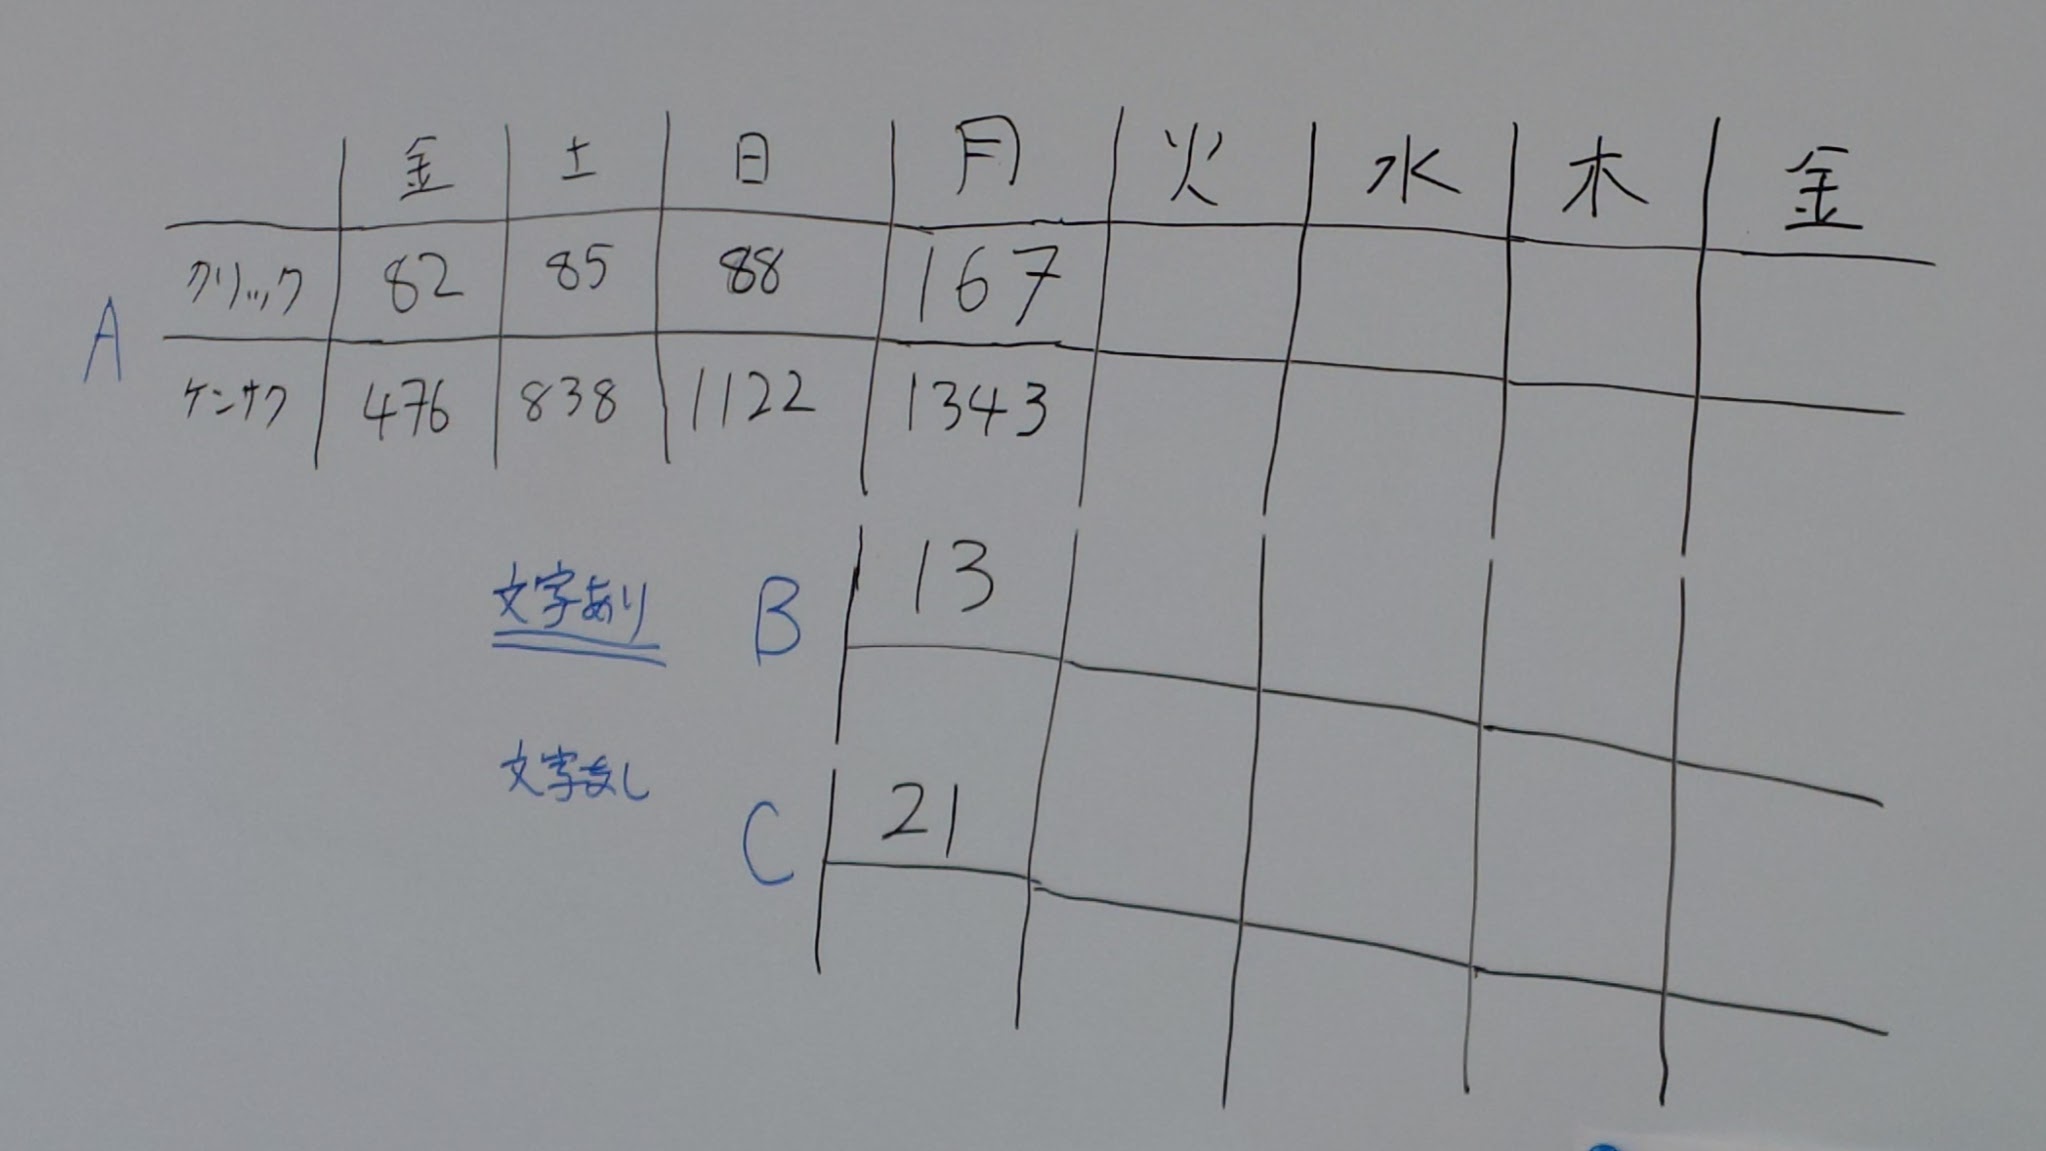 金 土 日 月 火 水 木 金
クリック 82 85 88 167
A
ケンサク 476 838 1122 1343
文字あり B 13
文字なし
C 21